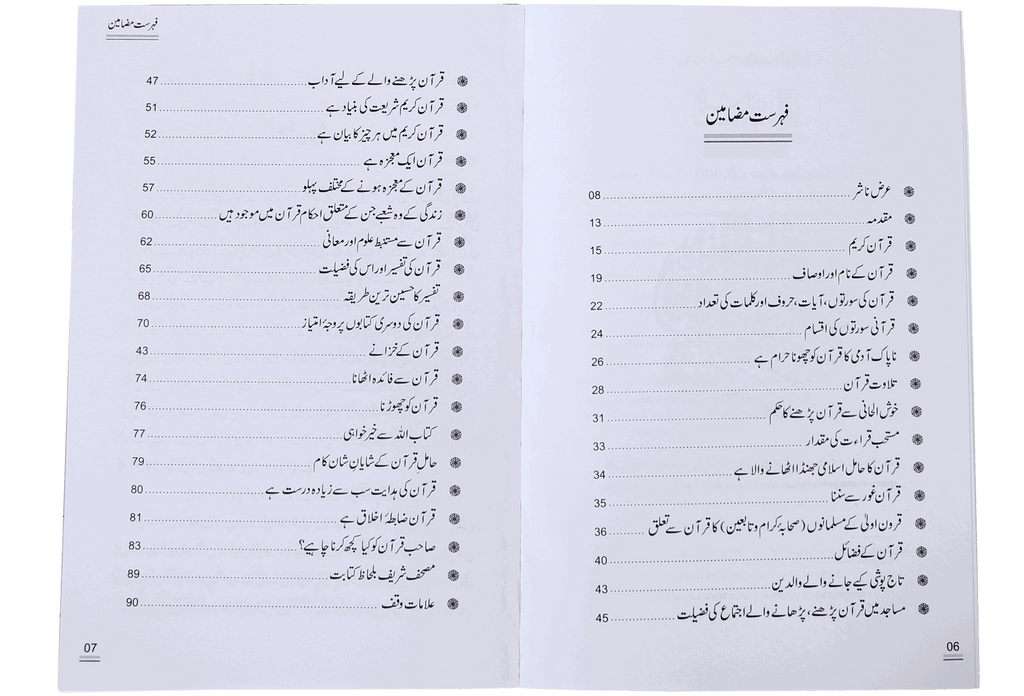 فہرست مضامین
عرض ناشر 08
مقدمہ 13
قرآن کریم 15
قرآن کے نام اور اوصاف 19
قرآن کی سورتوں، آیات، حروف اور کلمات کی تعداد 22
قرآنی سورتوں کی اقسام 24
ناپاک آدمی کا قرآن کو چھونا حرام ہے 26
تلاوت قرآن 28
خوش الحانی سے قرآن پڑھنے کا حکم 31
مستحب قراءت کی مقدار 33
قرآن کا حامل اسلامی جھنڈا اٹھانے والا ہے 34
قرآن غور سے سننا 35
قرون اولیٰ کے مسلمانوں (صحابۂ کرام و تابعین) کا قرآن سے تعلق 36
قرآن کے فضائل 40
تاج پوشی کیے جانے والے والدین 43
مساجد میں قرآن پڑھنے، پڑھانے والے اجتماع کی فضیلت 45
06
فہرست مضامین
قرآن پڑھنے والے کے لیے آداب 47
قرآن کریم شریعت کی بنیاد ہے 51
قرآن کریم میں ہر چیز کا بیان ہے 52
قرآن ایک معجزہ ہے 55
قرآن کے معجزہ ہونے کے مختلف پہلو 57
زندگی کے وہ شعبے جن کے متعلق احکام قرآن میں موجود ہیں 60
قرآن سے مستنبط علوم اور معانی 62
قرآن کی تفسیر اور اس کی فضیلت 65
تفسیر کا حسین ترین طریقہ 68
قرآن کی دوسری کتابوں پر وجۂ امتیاز 70
قرآن کے خزانے 43
قرآن سے فائدہ اٹھانا 74
قرآن کو چھوڑنا 76
کتاب اللہ سے خیر خواہی 77
حامل قرآن کے شایان شان کام 79
قرآن کی ہدایت سب سے زیادہ درست ہے 80
قرآن ضابطۂ اخلاق ہے 81
صاحب قرآن کو کیا کچھ کرنا چاہیے؟ 83
مصحف شریف بلحاظ کتابت 89
علامات وقف 90
07